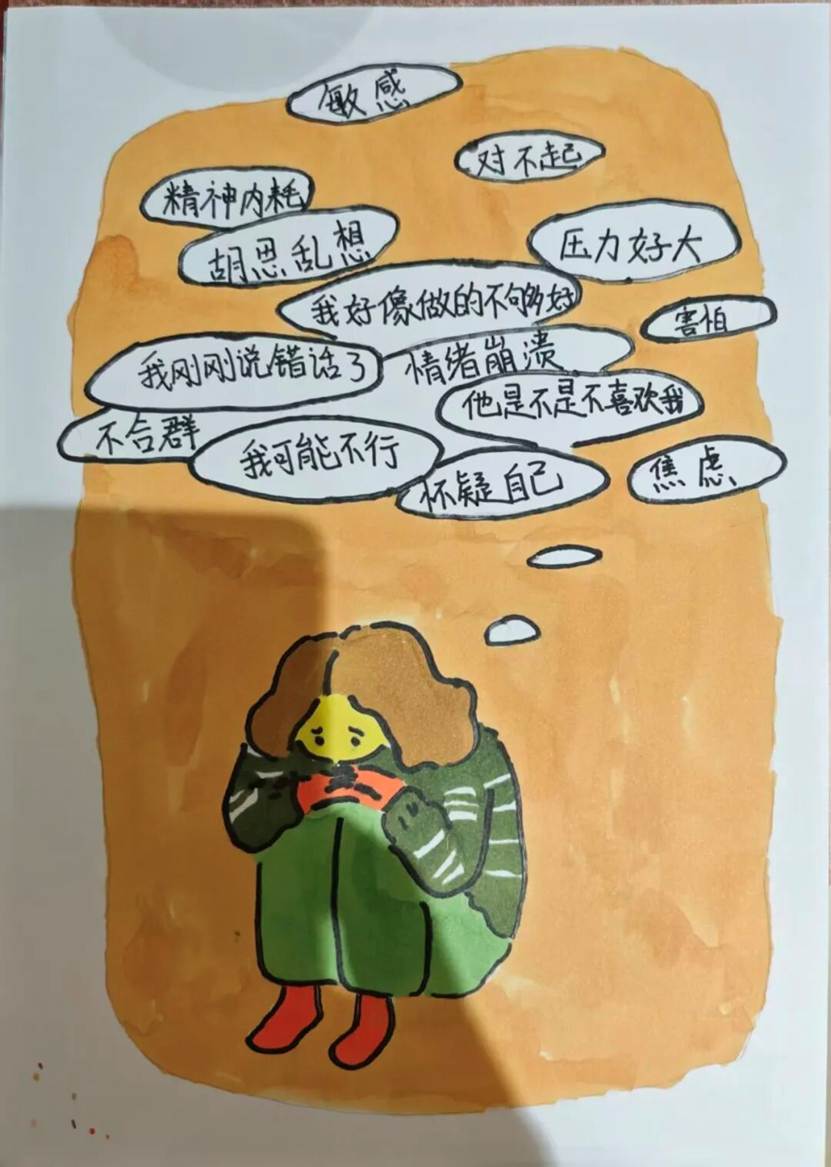 敏感
对不起
精神内耗
胡思乱想
压力好大
我好像做的不够好
害怕
我刚刚说错话了
情绪崩溃
他是不是不喜欢我
不合群
我可能不行
怀疑自己
焦虑